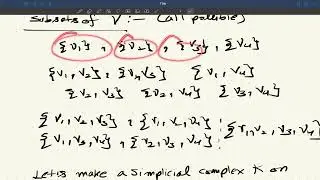 Subsets of V :- (all possible)
{v1} , {v2} , {v3} , {v4}
{v1, v2} , {v1, v3} {v1, v4}
{v2, v3} {v2, v4} {v3, v4}
{v1, v2, v3} , {v1, v2, v4} {v1, v2, v3, v4}
{v1, v3, v4} , {v2, v3, v4}
Let's make a simplicial complex K on